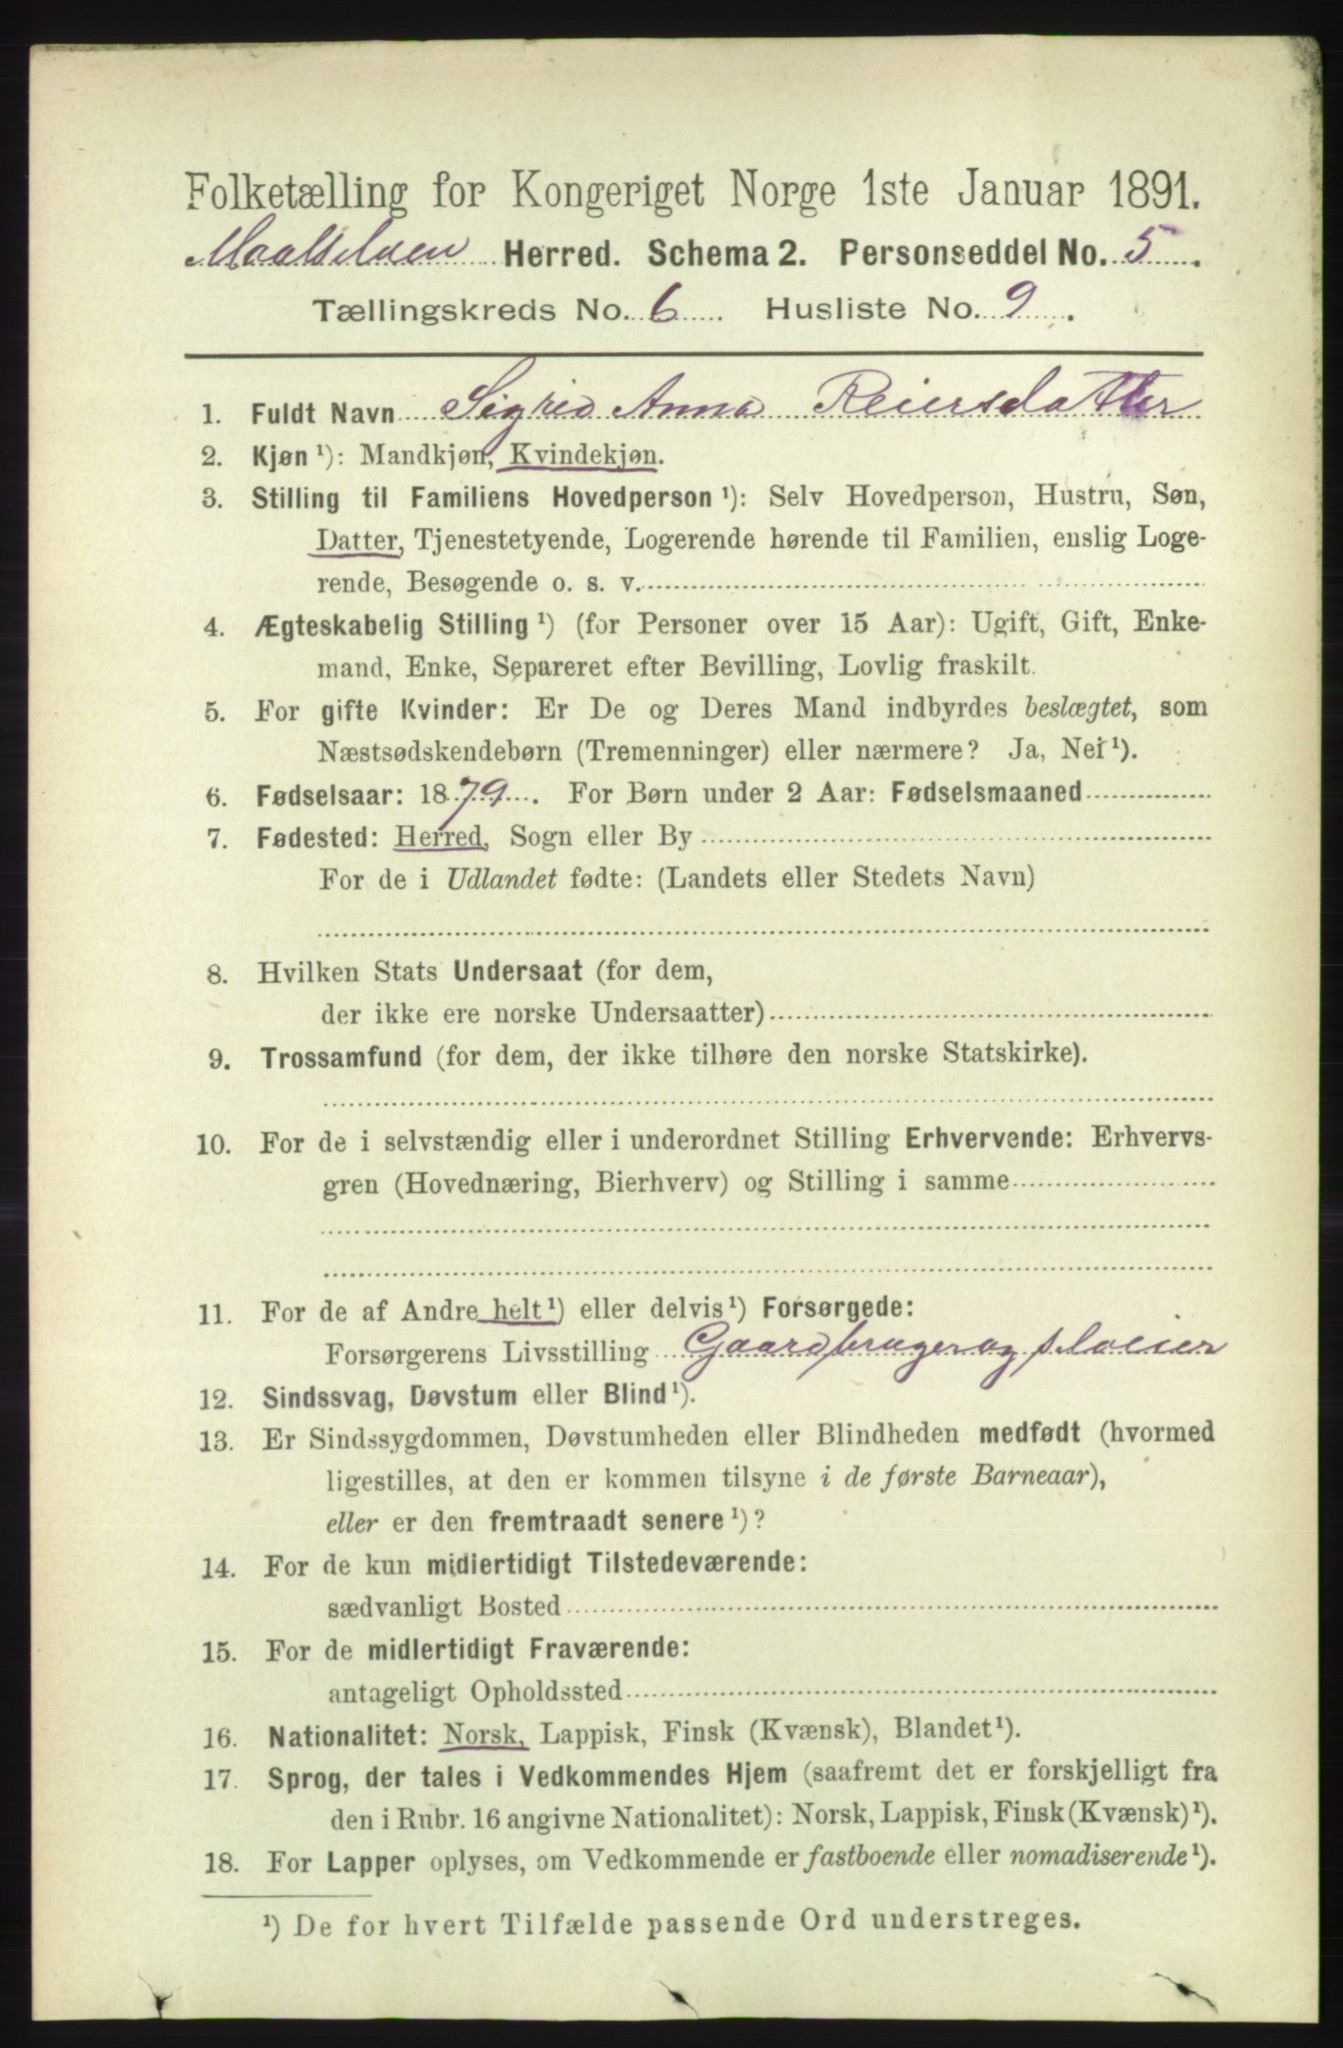 Folketælling for Kongeriget Norge 1ste Januar 1891.
Maalselven Herred. Schema 2. Personseddel No. 5.
Tællingskreds No. 6 Husliste No. 9.
1. Fuldt Navn Sigrid Anna Reiersdatter
2. Kjøn ¹): Mandkjøn, Kvindekjøn.
3. Stilling til Familiens Hovedperson ¹): Selv Hovedperson, Hustru, Søn,
Datter, Tjenestetyende, Logerende hørende til Familien, enslig Loge-
rende, Besøgende o. s. v.
4. Ægteskabelig Stilling ¹) (for Personer over 15 Aar): Ugift, Gift, Enke-
mand, Enke, Separeret efter Bevilling, Lovlig fraskilt.
5. For gifte Kvinder: Er De og Deres Mand indbyrdes beslægtet, som
Næstsødskendebørn (Tremenninger) eller nærmere? Ja, Nei ¹).
6. Fødselsaar: 1879. For Børn under 2 Aar: Fødselsmaaned
7. Fødested: Herred, Sogn eller By
For de i Udlandet fødte: (Landets eller Stedets Navn)
8. Hvilken Stats Undersaat (for dem,
der ikke ere norske Undersaatter)
9. Trossamfund (for dem, der ikke tilhøre den norske Statskirke).
10. For de i selvstændig eller i underordnet Stilling Erhvervende: Erhvervs-
gren (Hovednæring, Bierhverv) og Stilling i samme
11. For de af Andre helt ¹) eller delvis ¹) Forsørgede:
Forsørgerens Livsstilling Gaardbruger og selveier
12. Sindssvag, Døvstum eller Blind ¹).
13. Er Sindssygdommen, Døvstumheden eller Blindheden medfødt (hvormed
ligestilles, at den er kommen tilsyne i de første Barneaar),
eller er den fremtraadt senere ¹)?
14. For de kun midlertidigt Tilstedeværende:
sædvanligt Bosted
15. For de midlertidigt Fraværende:
antageligt Opholdssted
16. Nationalitet: Norsk, Lappisk, Finsk (Kvænsk), Blandet ¹).
17. Sprog, der tales i Vedkommendes Hjem (saafremt det er forskjelligt fra
den i Rubr. 16 angivne Nationalitet): Norsk, Lappisk, Finsk (Kvænsk) ¹).
18. For Lapper oplyses, om Vedkommende er fastboende eller nomadiserende ¹).
¹) De for hvert Tilfælde passende Ord understreges.